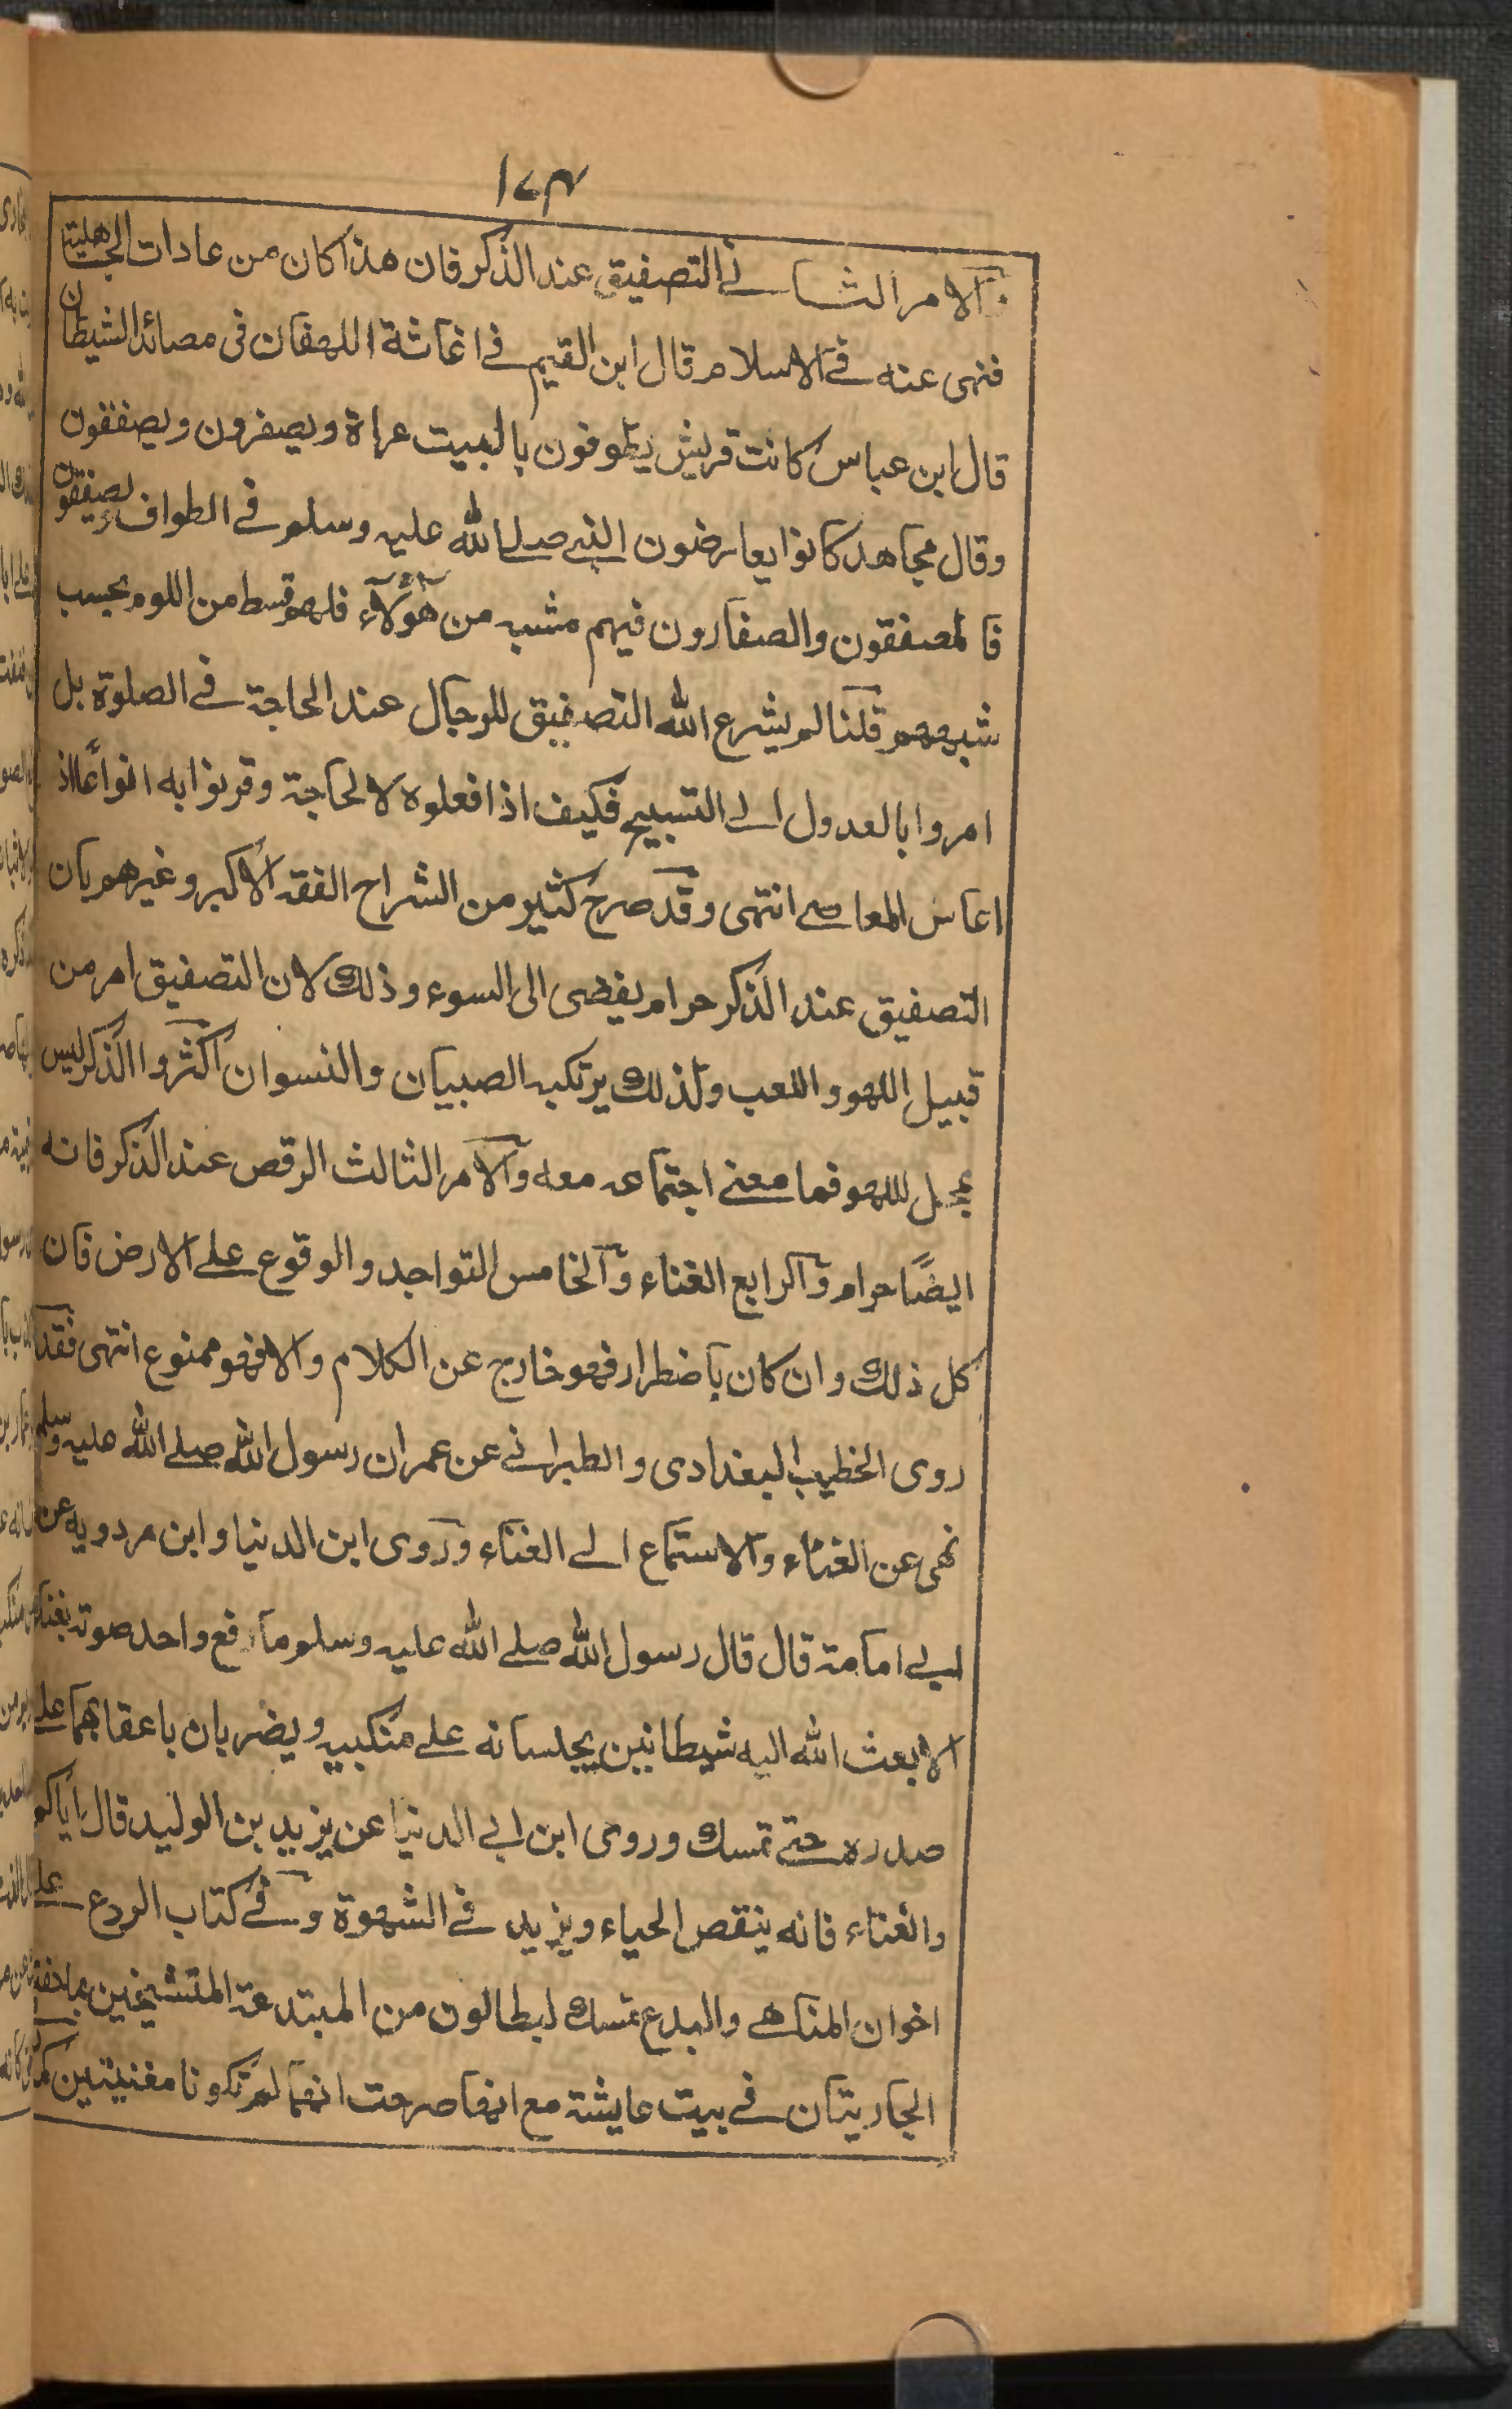 ۱۷۴
والامر الثانے التصفيق عند الذكر فان هذا كان من عادات الجاهلية
فنهى عنه فے الاسلام قال ابن القيم فے اغاثة اللهفان فى مصائد الشيطان
قال ابن عباس كانت قريش يطوفون بالبيت عراة ويصفرون ويصفقون
وقال مجاهد كانوا يعارضون النبي صلے الله عليه وسلم فے الطواف ويصفقون
فالمصفقون والصفارون فيهم مشبه من هؤلاء فلهم قسط من اللوم بحسب
شبههم قلنا لم يشرع الله التصفيق للرجال عند الحاجة فے الصلوة بل
امروا بالعدول الے التسبيح فكيف اذا فعلوه لا لحاجة وقرنوا به انواعا اذ
اعاس المعاصے انتهى وقد صرح كثير من الشراح الفقه الاكبر وغيرهم بان
التصفيق عند الذكر حرام يفضى الى السوء وذلك لان التصفيق امر من
قبيل اللهو واللعب ولذلك يرتكبه الصبيان والنسوان اكثروا الذكر ليس
بمحل للهو فما معنے اجتماعه معه والامر الثالث الرقص عند الذكر فانه
ايضًا حرام والرابع الغناء والخامس التواجد والوقوع علے الارض فان
كل ذلك وان كان باضطرار فهو خارج عن الكلام والا فهو ممنوع انتهى فقد
روى الخطيب البغدادى والطبرانے عن عمران رسول الله صلے الله عليه وسلم
نهى عن الغناء والاستماع الے الغناء وروى ابن الدنيا وابن مردويه عن
ابے امامة قال قال رسول الله صلے الله عليه وسلم ما رفع واحد صوته بغناء
الا بعث الله اليه شيطانين يجلسانه علے منكبيه ويضربان باعقابهما علے
صدره حتے تمسك وروى ابن ابے الدنيا عن يزيد بن الوليد قال اياكم
والغناء فانه ينقص الحياء ويزيد فے الشهوة وفے كتاب الردع علے
اخوان المناهے والبدع تمسك لبطالون من المبتدعة المتشيخين
الجاريتان فے بيت عايشة مع انها صرحت انهما لم تكونا مغنيتين